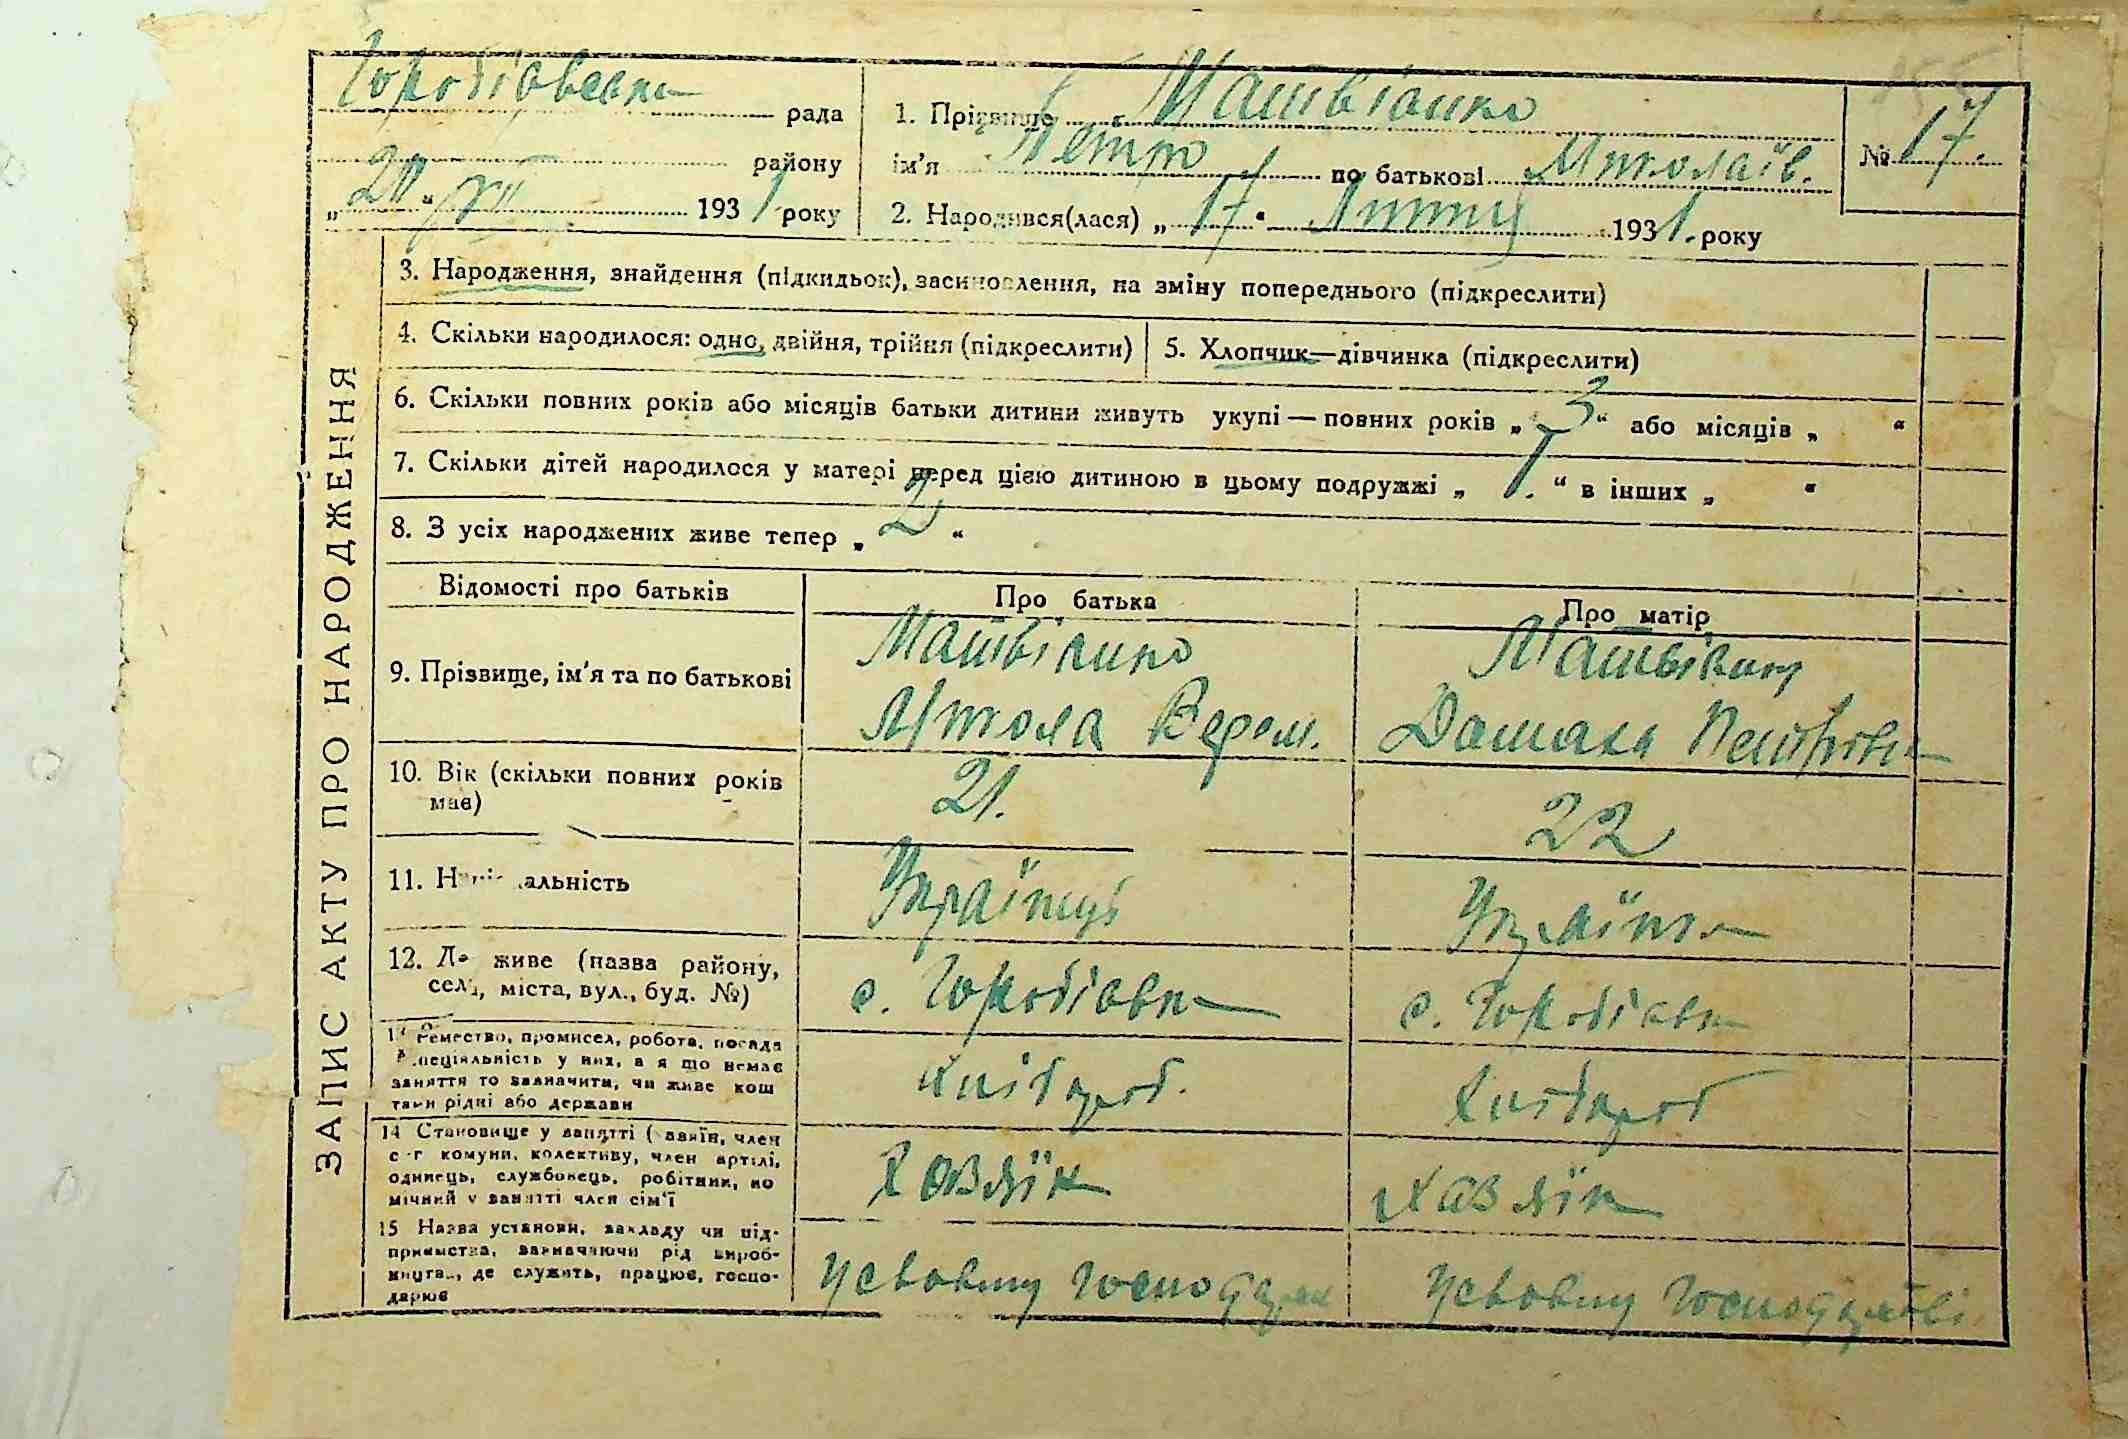 Горобіовська рада
району
„20“ VII 1931 року
1. Прізвище Матвіюнко
ім'я Петро по батькові Миколаїв.
2. Народився(лася) „17“ Липня 1931. року
№ 17.
ЗАПИС АКТУ ПРО НАРОДЖЕННЯ
3. Народження, знайдення (підкидьок), засиновлення, на зміну попереднього (підкреслити)
4. Скільки народилося: одно, двійня, трійня (підкреслити)
5. Хлопчик—дівчинка (підкреслити)
6. Скільки повних років або місяців батьки дитини живуть укупі — повних років „3“ або місяців „ “
7. Скільки дітей народилося у матері перед цією дитиною в цьому подружжі „1.“ в інших „ “
8. З усіх народжених живе тепер „2“
Відомості про батьків
Про батька
Про матір
9. Прізвище, ім'я та по батькові
Микола
Петрівн
10. Вік (скільки повних років
має)
21.
22
11. Національність
Українці
Українка
12. Де живе (назва району,
села, міста, вул., буд. №)
с.
с.
13 Ремество, промисел, робота, посада
спеціяльність у них, а якщо немає
заняття то зазначити, чи живе кош
тами рідні або держави
Хлібороб.
Хлібороб
14 Становище у занятті (хазяїн, член
с-г комуни, колективу, член артілі,
одинець, службовець, робітник, по
мічний у занятті член сім'ї
Хозяїн
Хазяїн
15 Назва установи, закладу чи під-
приємства, зазначаючи рід вироб-
ництва, де служить, працює, госпо-
дарює
У свойому господар
У свойому господарстві